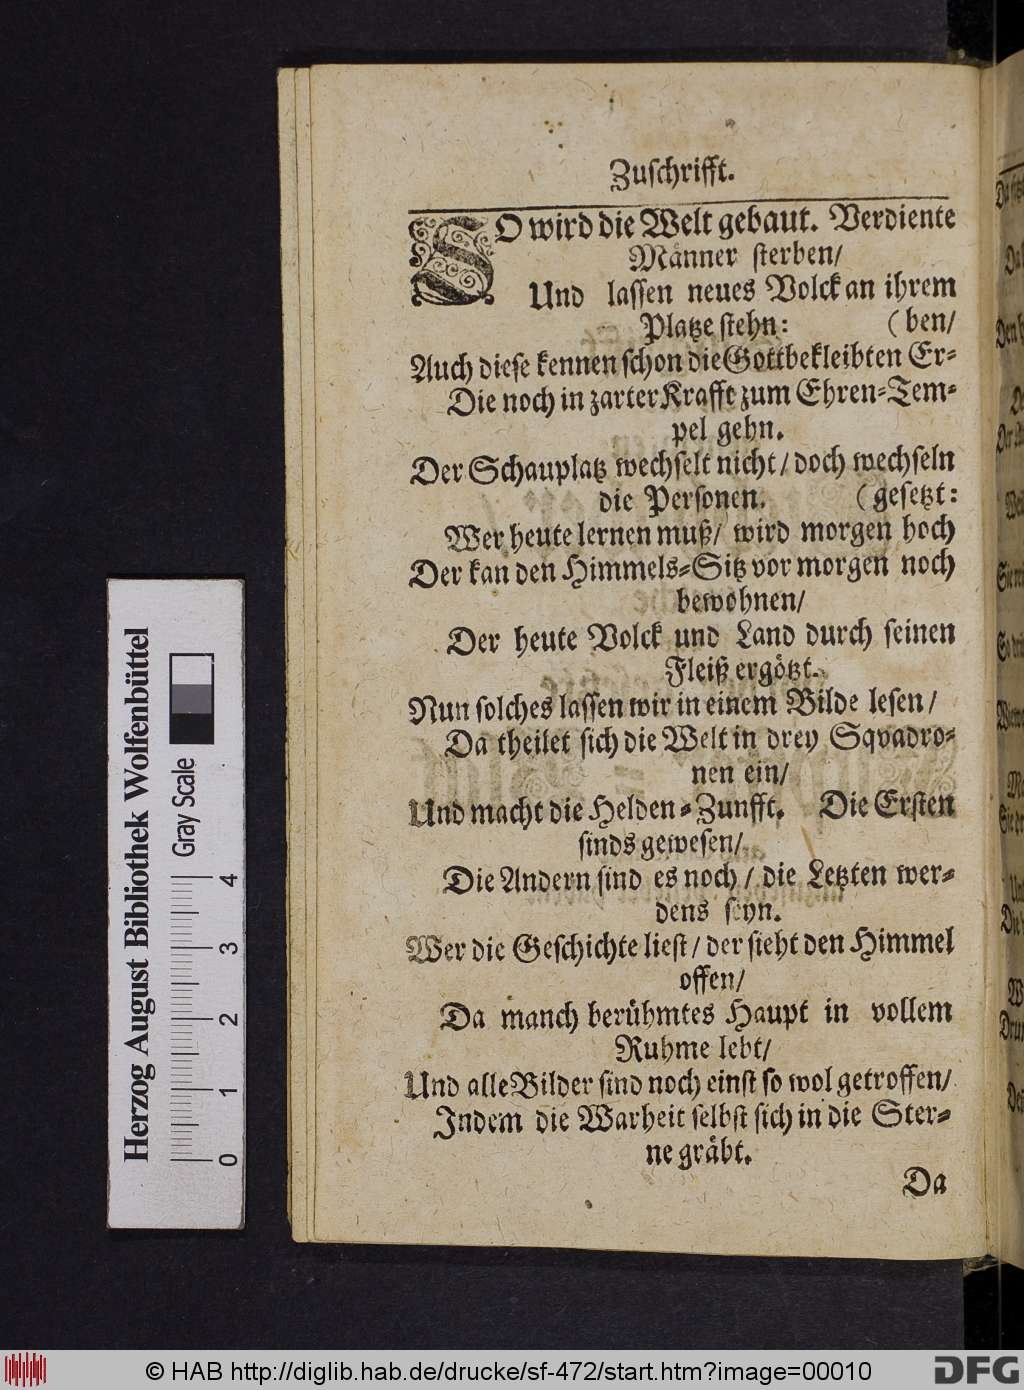 Zuschrifft.
SO wird die Welt gebaut. Verdiente
Männer sterben/
Und lassen neues Volck an ihrem
Platze stehn: (ben/
Auch diese kennen schon die Gottbekleibten Er-
Die noch in zarter Krafft zum Ehren-Tem-
pel gehn.
Der Schauplatz wechselt nicht/ doch wechseln
die Personen. (gesetzt:
Wer heute lernen muß/ wird morgen hoch
Der kan den Himmels-Sitz vor morgen noch
bewohnen/
Der heute Volck und Land durch seinen
Fleiß ergötzt.
Nun solches lassen wir in einem Bilde lesen/
Da theilet sich die Welt in drey Sqvadro-
nen ein/
Und macht die Helden-Zunfft. Die Ersten
sinds gewesen/
Die Andern sind es noch/ die Letzten wer-
dens seyn.
Wer die Geschichte liest/ der sieht den Himmel
offen/
Da manch berühmtes Haupt in vollem
Ruhme lebt/
Und alle Bilder sind noch einst so wol getroffen/
Indem die Warheit selbst sich in die Ster-
ne gräbt.
Da
Herzog August Bibliothek Wolfenbüttel
Gray Scale
0 1 2 3 4
© HAB http://diglib.hab.de/drucke/sf-472/start.htm?image=00010
DFG